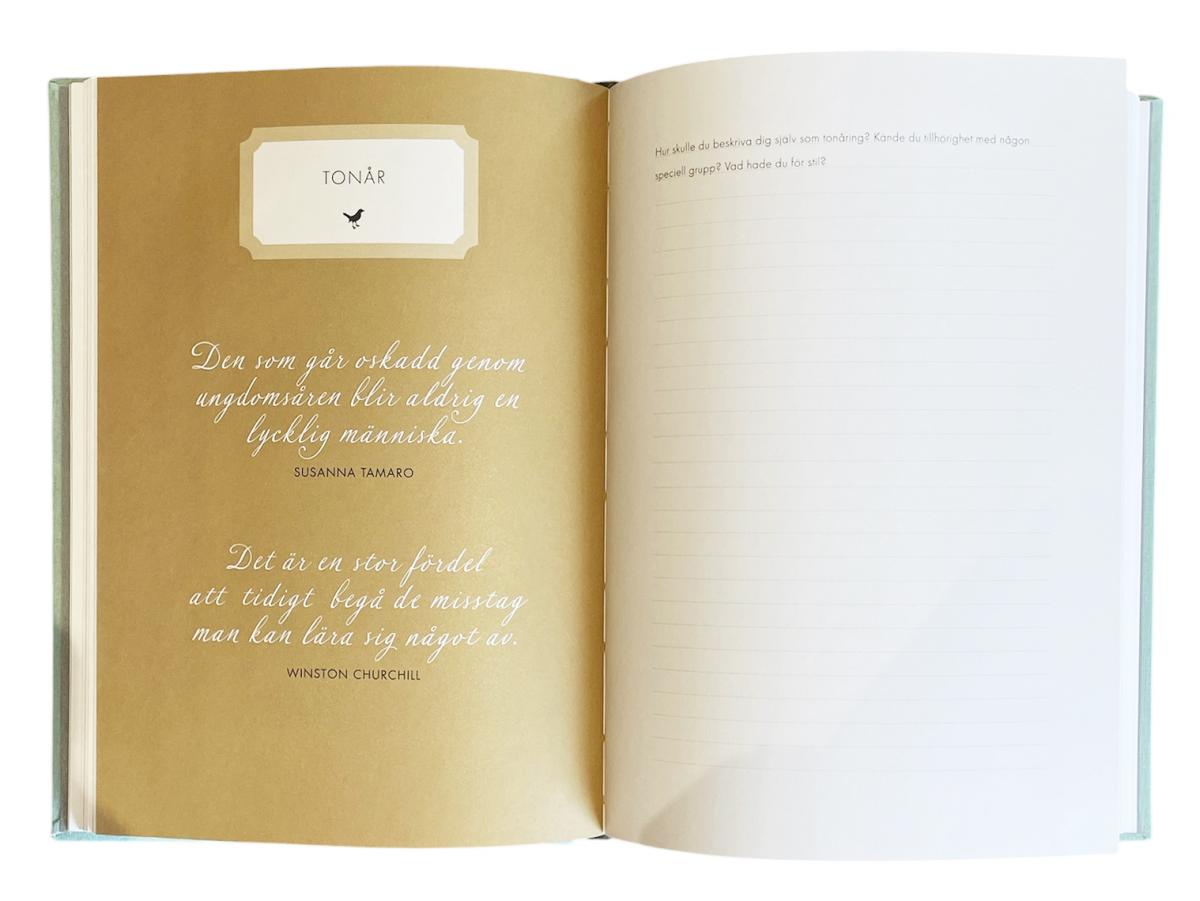 TONÅR
Den som går oskadd genom
ungdomsåren blir aldrig en
lycklig människa.
SUSANNA TAMARO
Det är en stor fördel
att tidigt begå de misstag
man kan lära sig något av.
WINSTON CHURCHILL
Hur skulle du beskriva dig själv som tonåring? Kände du tillhörighet med någon
speciell grupp? Vad hade du för stil?